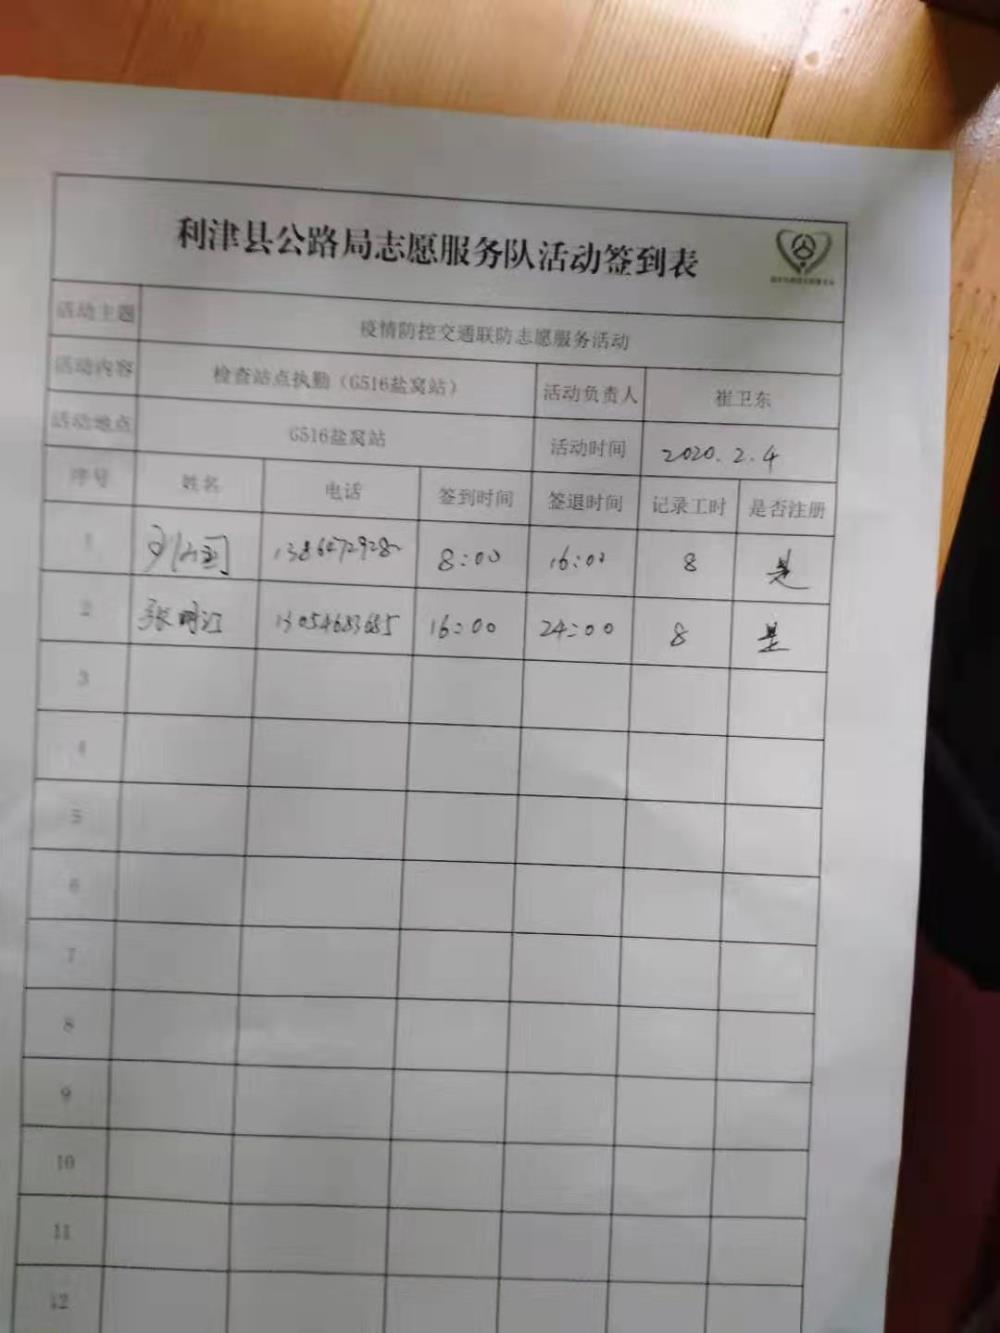 利津县公路局志愿服务队活动签到表
活动主题 疫情防控交通联防志愿服务活动
活动内容 检查站点执勤（G516盐窝站） 活动负责人 崔卫东
活动地点 G516盐窝站 活动时间 2020.2.4
序号 姓名 电话 签到时间 签退时间 记录工时 是否注册
1 8:00 16:00 8 是
2 张明江 13054683685 16:00 24:00 8 是
3
4
5
6
7
8
9
10
11
12